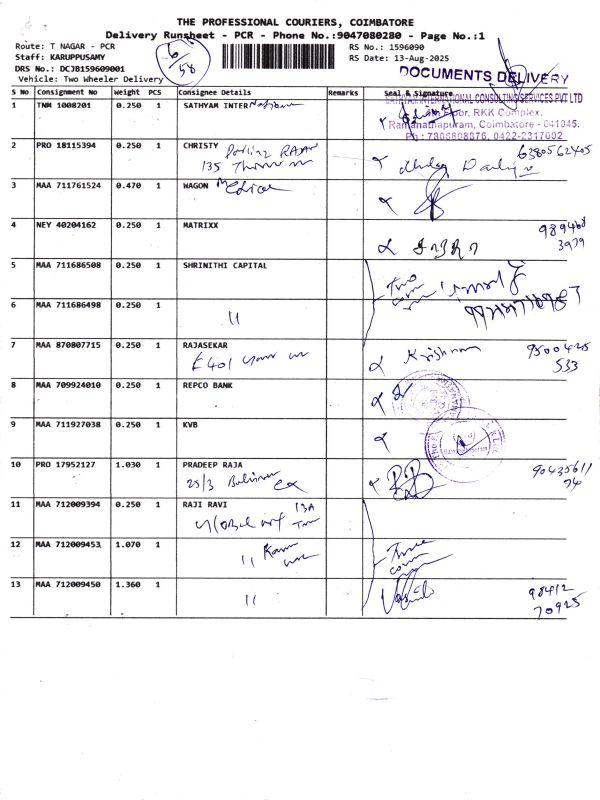 THE PROFESSIONAL COURIERS, COIMBATORE
Delivery Runsheet - PCR - Phone No.:9047080280 - Page No.:1
Route: T NAGAR - PCR
RS No.: 1596090
Staff: KARUPPUSAMY
RS Date: 13-Aug-2025
DRS No.: DCJB159609001
Vehicle: Two Wheeler Delivery
6/58
DOCUMENTS DELIVERY
S No Consignment No Weight PCS Consignee Details Remarks Seal & Signature
1 TNM 1008201 0.250 1 SATHYAM INTER
INTERNATIONAL CONSULTING SERVICES PVT LTD
Floor, RKK Complex,
Ramanathapuram, Coimbatore - 641045.
2 PRO 18115394 0.250 1 CHRISTY
135
6380562405
3 MAA 711761524 0.470 1 WAGON Medical
4 NEY 40204162 0.250 1 MATRIXX
989468
3979
5 MAA 711686508 0.250 1 SHRINITHI CAPITAL
Two
6 MAA 711686498 0.250 1 11
7 MAA 870807715 0.250 1 RAJASEKAR
E401
Krishnan
9500425
533
8 MAA 709924010 0.250 1 REPCO BANK
9 MAA 711927038 0.250 1 KVB
10 PRO 17952127 1.030 1 PRADEEP RAJA
25/3
90435611
74
11 MAA 712009394 0.250 1 RAJI RAVI
13A
12 MAA 712009453 1.070 1 11
Three
13 MAA 712009450 1.360 1 11
98412
70925